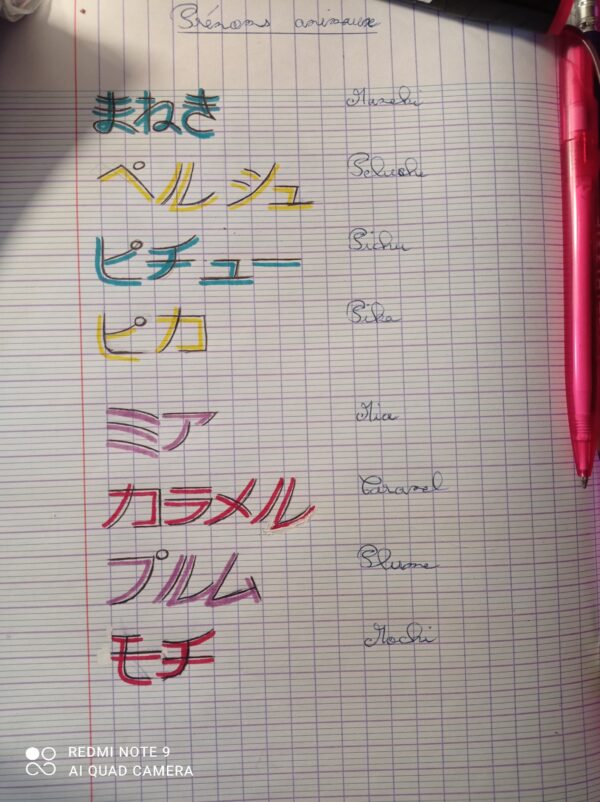 Prénoms animaux
まねき Maneki
ペルシュ Peluche
ピチュー Pichu
ピカ Pika
ミア Mia
カラメル Caramel
プルム Plume
モチ Mochi
REDMI NOTE 9
AI QUAD CAMERA